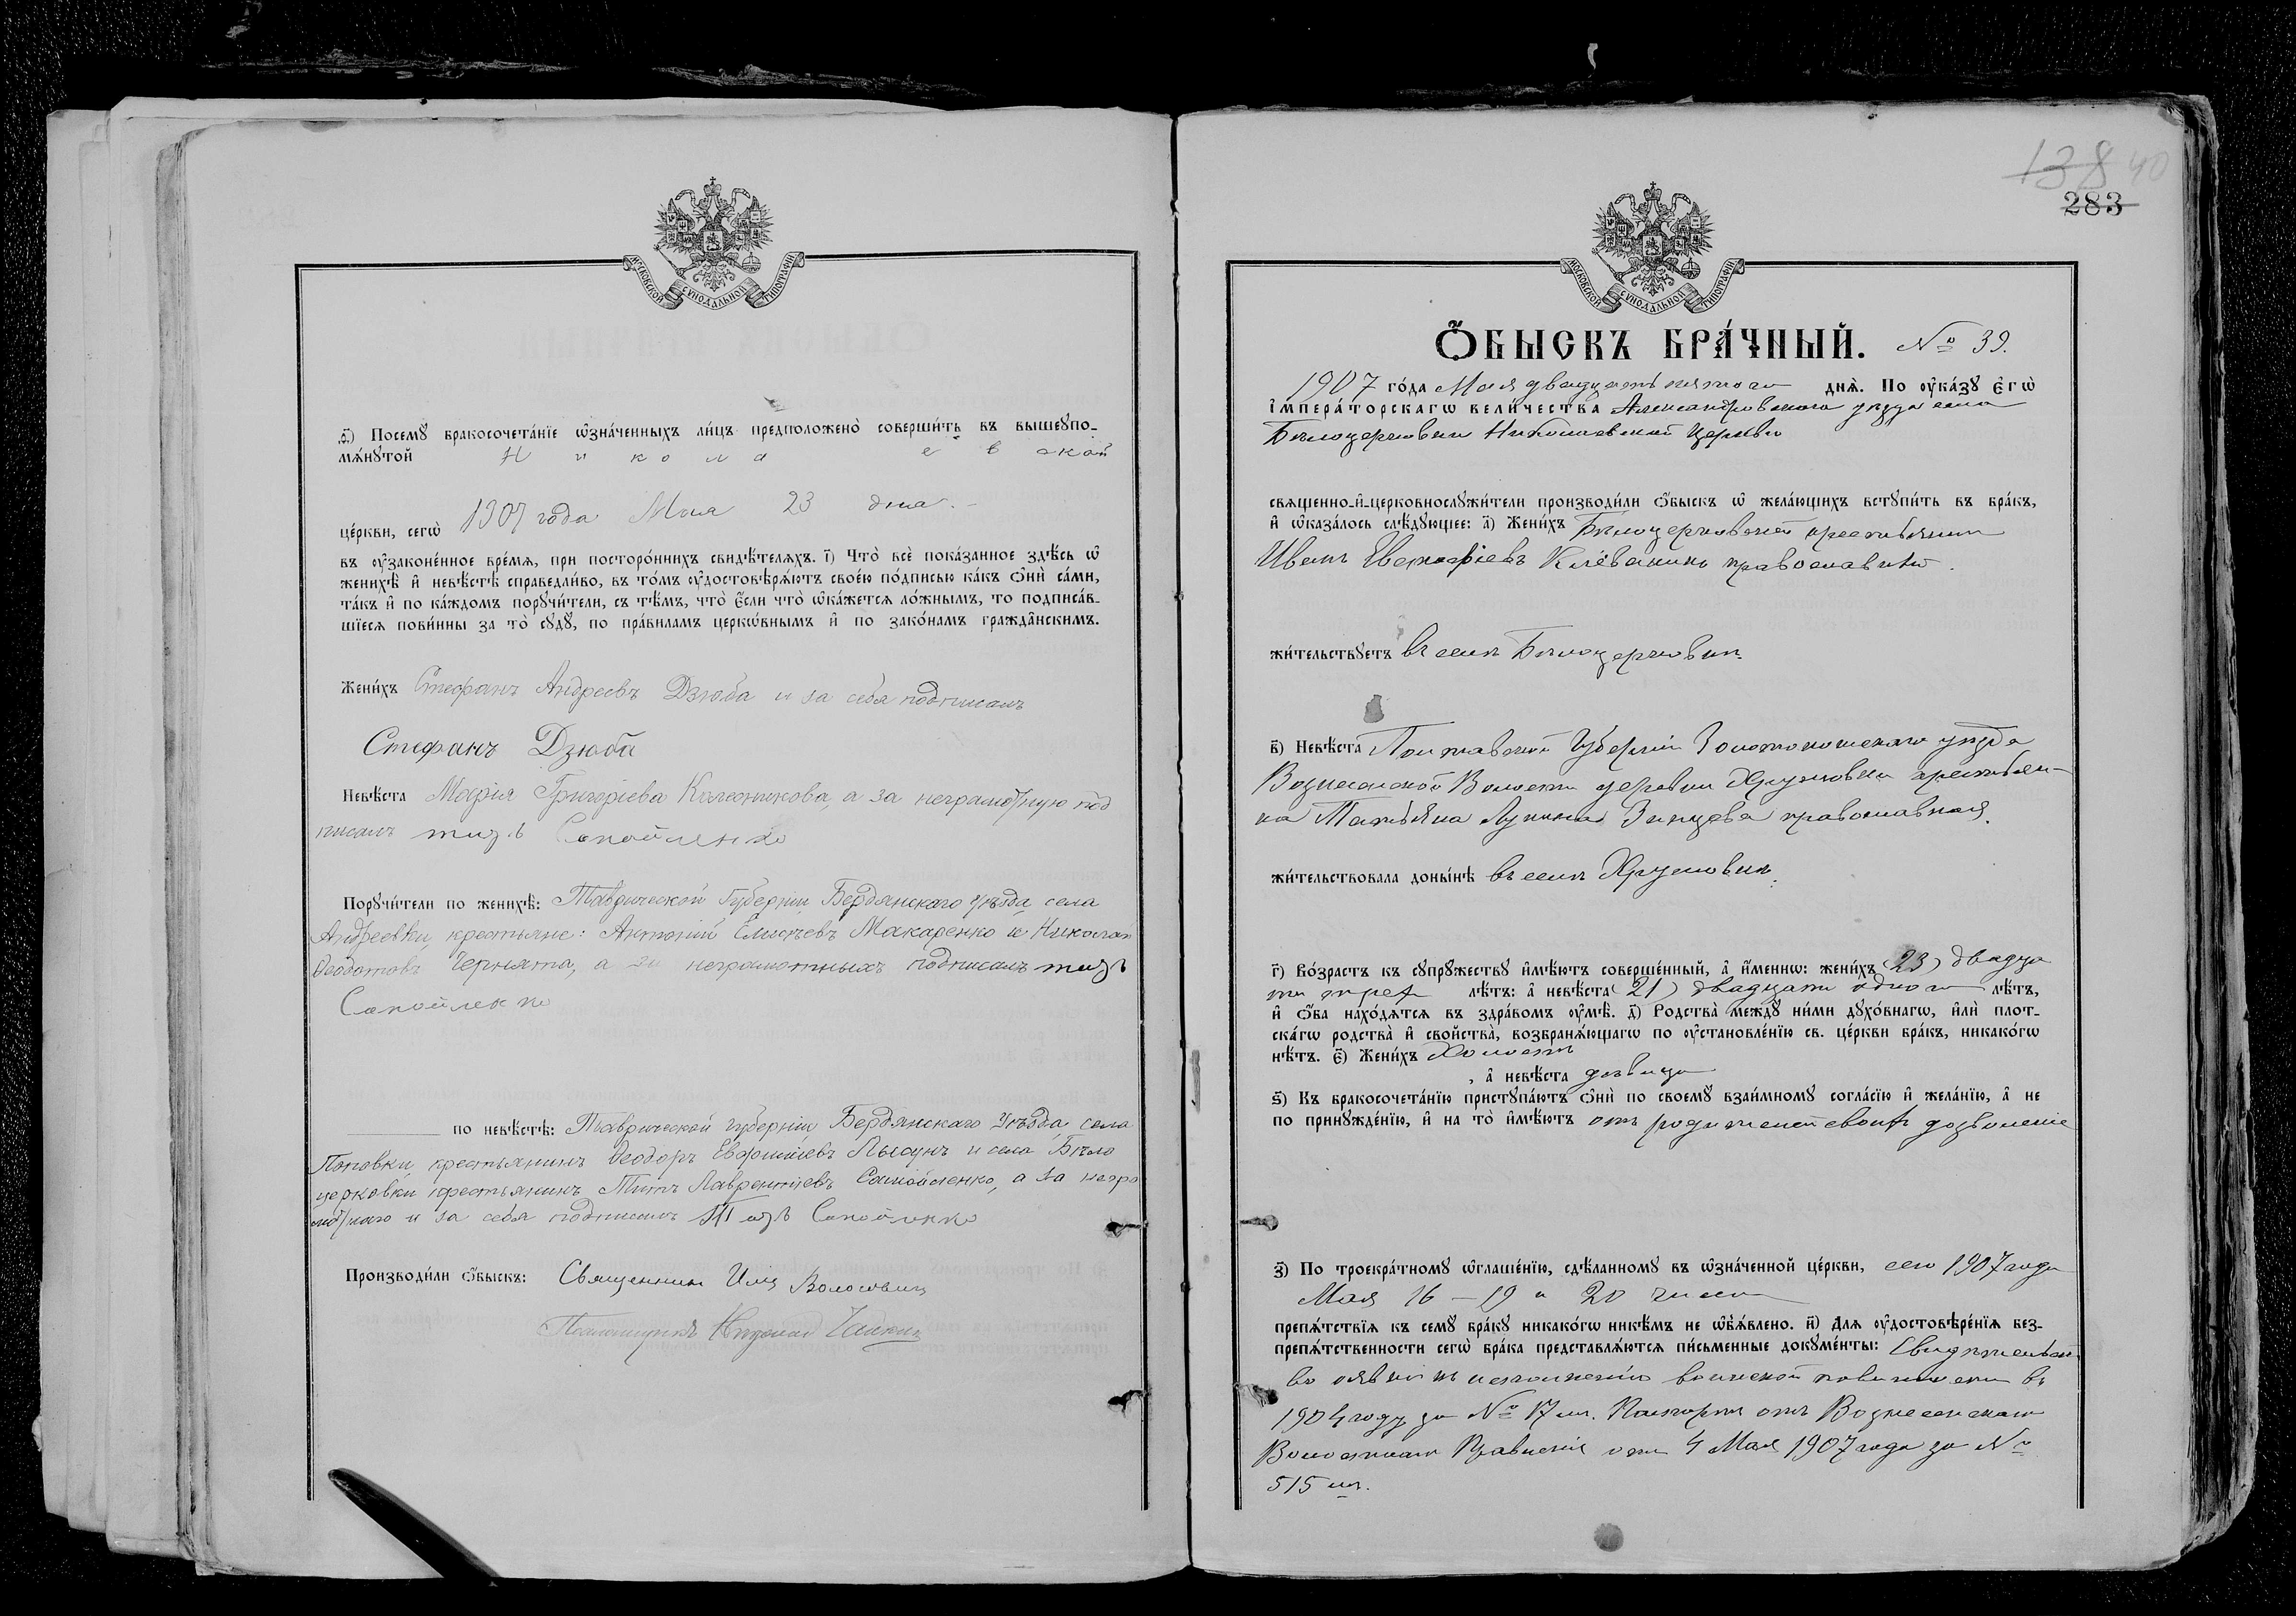 МОСКОВСКОЙ СѴНОДАЛЬНОЙ ТИПОГРАФІИ
ѳ҃) Посемꙋ̀ бракосочета́нїе ѡ҆зна́ченныхъ ли́цъ предположено̀ соверши́ть въ вышеꙋпо-
мѧ́нꙋтой Николаевской
це́ркви, сегѡ̀ 1907 года Мая 23 дня.
въ ᲂу҆законе́нное вре́мѧ, при посторо́ннихъ свидѣ́телѧхъ. і҃) Что̀ всѐ пока́занное здѣ́сь ѡ҆
женихѣ̀ и҆ невѣ́стѣ справедли́во, въ то́мъ ᲂу҆достовѣрѧ́ютъ свое́ю по́дписью ка́къ ѻ҆нѝ са́ми,
та́къ и҆ по ка́ждомъ порꙋчи́тели, съ тѣ́мъ, что̀ є҆́сли что̀ ѡ҆ка́жетсѧ ло́жнымъ, то подписа́в-
шїесѧ пови́нны за то̀ сꙋдꙋ̀, по пра́виламъ церкѡ́внымъ и҆ по зако́намъ гражда̂нскимъ.
Жени́хъ Стефанъ Андреевъ Дзюба и за себя подписалъ
Стефанъ Дзюба
Невѣ́ста Марія Григоріева Колесникова, а за неграмотную под
писалъ Титъ Самойленко
Порꙋчи́тели по женихѣ̀: Таврической Губерніи Бердянскаго Уѣзда, села
Андреевки, крестьяне: Антоній Елисѣевъ Макаренко и Николай
Ѳеодотовъ Чернята, а за неграмотныхъ подписалъ Титъ
Самойленко
по невѣ́стѣ: Таврической губерніи Бердянскаго Уѣзда, села
Поповки, крестьянинъ Ѳеодоръ Лысунъ и села Бѣло
церковки крестьянинъ Титъ Лаврентіевъ Самойленко, а за негра
мотнаго и за себя подписалъ Титъ Самойленко
Производи́ли ѻ҆́быскъ: Священникъ Илія Волошинъ
Псаломщикъ Николай
138 40
283
МОСКОВСКОЙ СѴНОДАЛЬНОЙ ТИПОГРАФІИ
Ѻ҆́БЫСКЪ БРА́ЧНЫЙ. № 39.
1907 го́да Мая двадцать пятаго днѧ̀. По ᲂу҆ка́зꙋ є҆гѡ̀
і҆мпера́торскагѡ вели́чества Александровскаго уѣзда села
Бѣлоцерковки Николаевской Церкви
свѧщенно-и҆-церковнослꙋжи́тели производи́ли ѻ҆́быскъ ѡ҆ жела́ющихъ встꙋпи́ть въ бра́къ,
и҆ ѡ҆каза́лось слѣ́дꙋющее: а҃) Жени́хъ Бѣлоцерковскій крестьянинъ
Иванъ Евстафіевъ Клёванинъ православный.
жи́тельствꙋетъ въ селѣ Бѣлоцерковкѣ.
в҃) Невѣ́ста Полтавской Губерніи Золотоношскаго уѣзда
Вознесенской Волости деревни Хрусновки крестьян-
ка Татьяна Лукина Зинцева православная.
жи́тельствовала доны́нѣ въ селѣ Хрусновкѣ.
г҃) Во́зрастъ къ сꙋпрꙋ́жествꙋ и҆мѣ́ютъ соверше́нный, а҆ и҆́меннѡ: жени́хъ (23) двадца
ти трех лѣ́тъ: а҆ невѣ́ста (21) двадцати одного лѣ́тъ,
и҆ ѻ҆́ба нахо́дѧтсѧ въ здра́вомъ ᲂу҆мѣ̀. д҃) Родства̀ междꙋ̀ ни́ми дꙋхо́внагѡ, и҆лѝ плот-
ска́гѡ родства̀ и҆ свойства̀, возбранѧ́ющагѡ по ᲂу҆становле́нїю св. це́ркви бра́къ, никако́гѡ
нѣ́тъ. є҃) Жени́хъ Холостъ
, а҆ невѣ́ста дѣвица
ѕ҃) Къ бракосочета́нїю пристꙋпа́ютъ ѻ҆нѝ по своемꙋ̀ взаи́мномꙋ согла́сїю и҆ жела́нїю, а҆ не
по принꙋжде́нїю, и҆ на то̀ и҆мѣ́ютъ отъ родителей своих дозволеніе
з҃) По троекра́тномꙋ ѡ҆глаше́нїю, сдѣ́ланномꙋ въ ѡ҆зна́ченной це́ркви, сего 1907 года
Мая 16 – 19 и 20 числа
препѧ́тствїѧ къ семꙋ̀ бра́кꙋ никако́гѡ никѣ́мъ не ѡ҆б̾ѧ́влено. и҃) Длѧ ᲂу҆достовѣре́нїѧ без-
препѧ́тственности сегѡ̀ бра́ка представлѧ́ютсѧ пи́сьменные докꙋме́нты: Свидѣтельст
во о явкѣ къ исполненію воинской повинности въ
1904 году за № 17 м. Паспортъ отъ Вознесенскаго
Волостнаго Правленія отъ 4 Мая 1907 года за №
515 м.